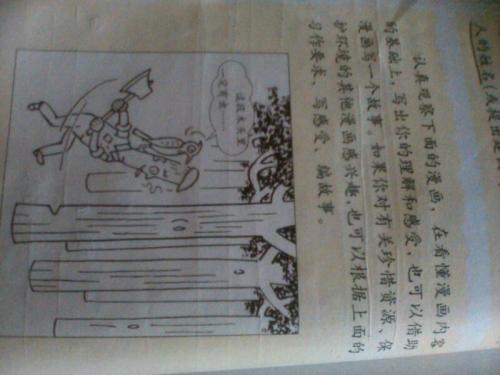 人的姓名（
认真观察下面的漫画，在看懂漫画内容
的基础上，写出你的理解和感受，也可以借助
漫画写一个故事。如果你对有关珍惜资源、保
护环境的其他漫画感兴趣，也可以根据上面的
习作要求，写感受、编故事。
这段木头里
一定有虫……